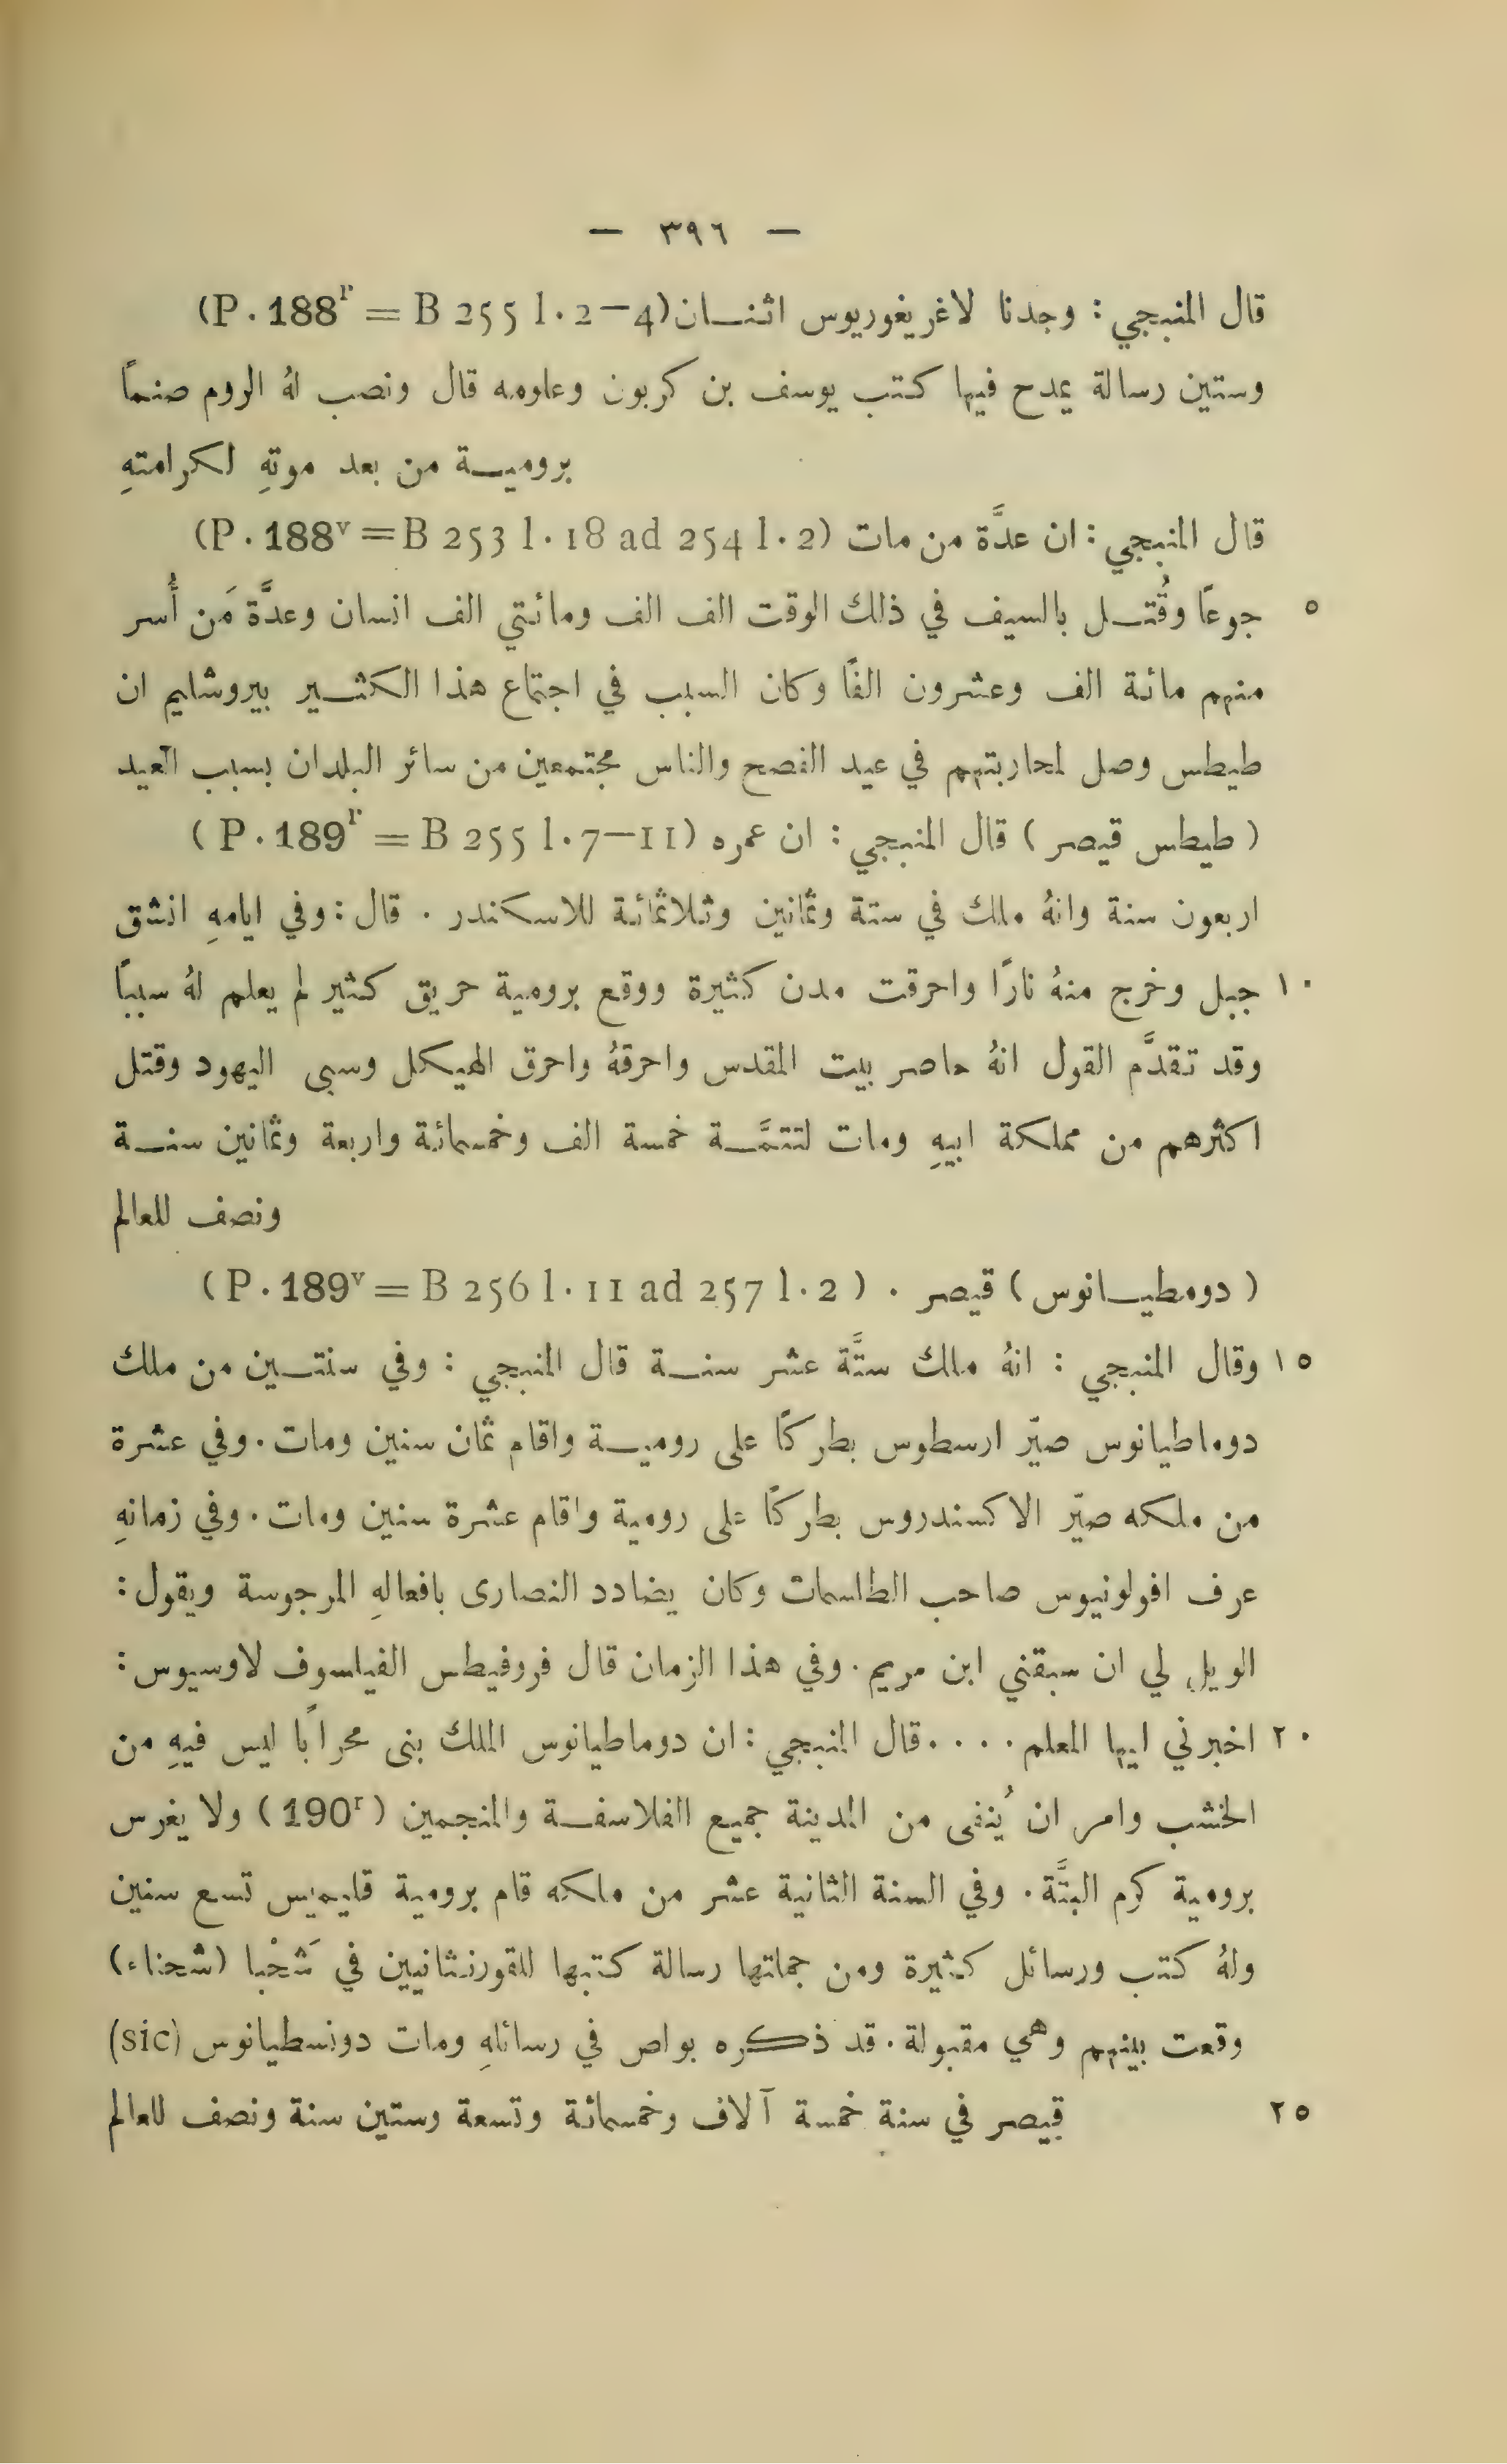 — ٣٩٦ —
قال المنبجي : وجدنا لاغريغوريوس اثنان (P. 188r = B 255 l. 2—4)
وستين رسالة يمدح فيها كتب يوسف بن كربون وعلومه قال ونصب لهُ الروم صنماً
برومية من بعد موتهِ لكرامتهِ
قال المنبجي : ان عدَّة من مات (P. 188v = B 253 l. 18 ad 254 l. 2)
٥ جوعًا وقُتل بالسيف في ذلك الوقت الف الف ومائتي الف انسان وعدَّة مَن أُسر
منهم مائة الف وعشرون الفًا وكان السبب في اجتماع هذا الكثير بيروشليم ان
طيطس وصل لمحاربتهم في عيد الفصح والناس مجتمعين من سائر البلدان بسبب العيد
( طيطس قيصر ) قال المنبجي : ان عمره (P. 189r = B 255 l. 7—11)
اربعون سنة وانهُ ملك في ستة وثمانين وثلاثمائة للاسكندر . قال : وفي ايامهِ انشق
١٠ جبل وخرج منهُ نارًا واحرقت مدن كثيرة ووقع برومية حريق كثير لم يعلم لهُ سببًا
وقد تقدَّم القول انهُ حاصر بيت المقدس واحرقهُ واحرق الهيكل وسبى اليهود وقتل
اكثرهم من مملكة ابيهِ ومات لتتمَّة خمسة الف وخمسمائة واربعة وثمانين سنة
ونصف للعالم
( دومطيانوس ) قيصر . (P. 189v = B 256 l. 11 ad 257 l. 2)
١٥ وقال المنبجي : انهُ ملك ستَّة عشر سنة قال المنبجي : وفي سنتين من ملك
دوماطيانوس صيّر ارسطوس بطركًا على رومية واقام ثمان سنين ومات . وفي عشرة
من ملكه صيّر الاكسندروس بطركًا على رومية واقام عشرة سنين ومات . وفي زمانهِ
عرف افولونيوس صاحب الطلسمات وكان يضادد النصارى بافعالهِ المرجوسة ويقول :
الويل لي ان سبقني ابن مريم . وفي هذا الزمان قال فروفيطس الفيلسوف لاوسيوس :
٢٠ اخبرني ايها المعلم . . . . قال المنبجي : ان دوماطيانوس الملك بنى محرابًا ليس فيهِ من
الخشب وامر ان يُنفى من المدينة جميع الفلاسفة والمنجمين ( 190r ) ولا يغرس
برومية كرم البتَّة . وفي السنة الثانية عشر من ملكه قام برومية قليميس تسع سنين
ولهُ كتب ورسائل كثيرة ومن جملتها رسالة كتبها للقورنثانيين في شَحْبا (شحناء)
وقعت بينهم وهي مقبولة . قد ذكره بولص في رسائلهِ ومات دونسطيانوس (sic)
٢٥ قيصر في سنة خمسة آلاف وخمسمائة وتسعة وستين سنة ونصف للعالم